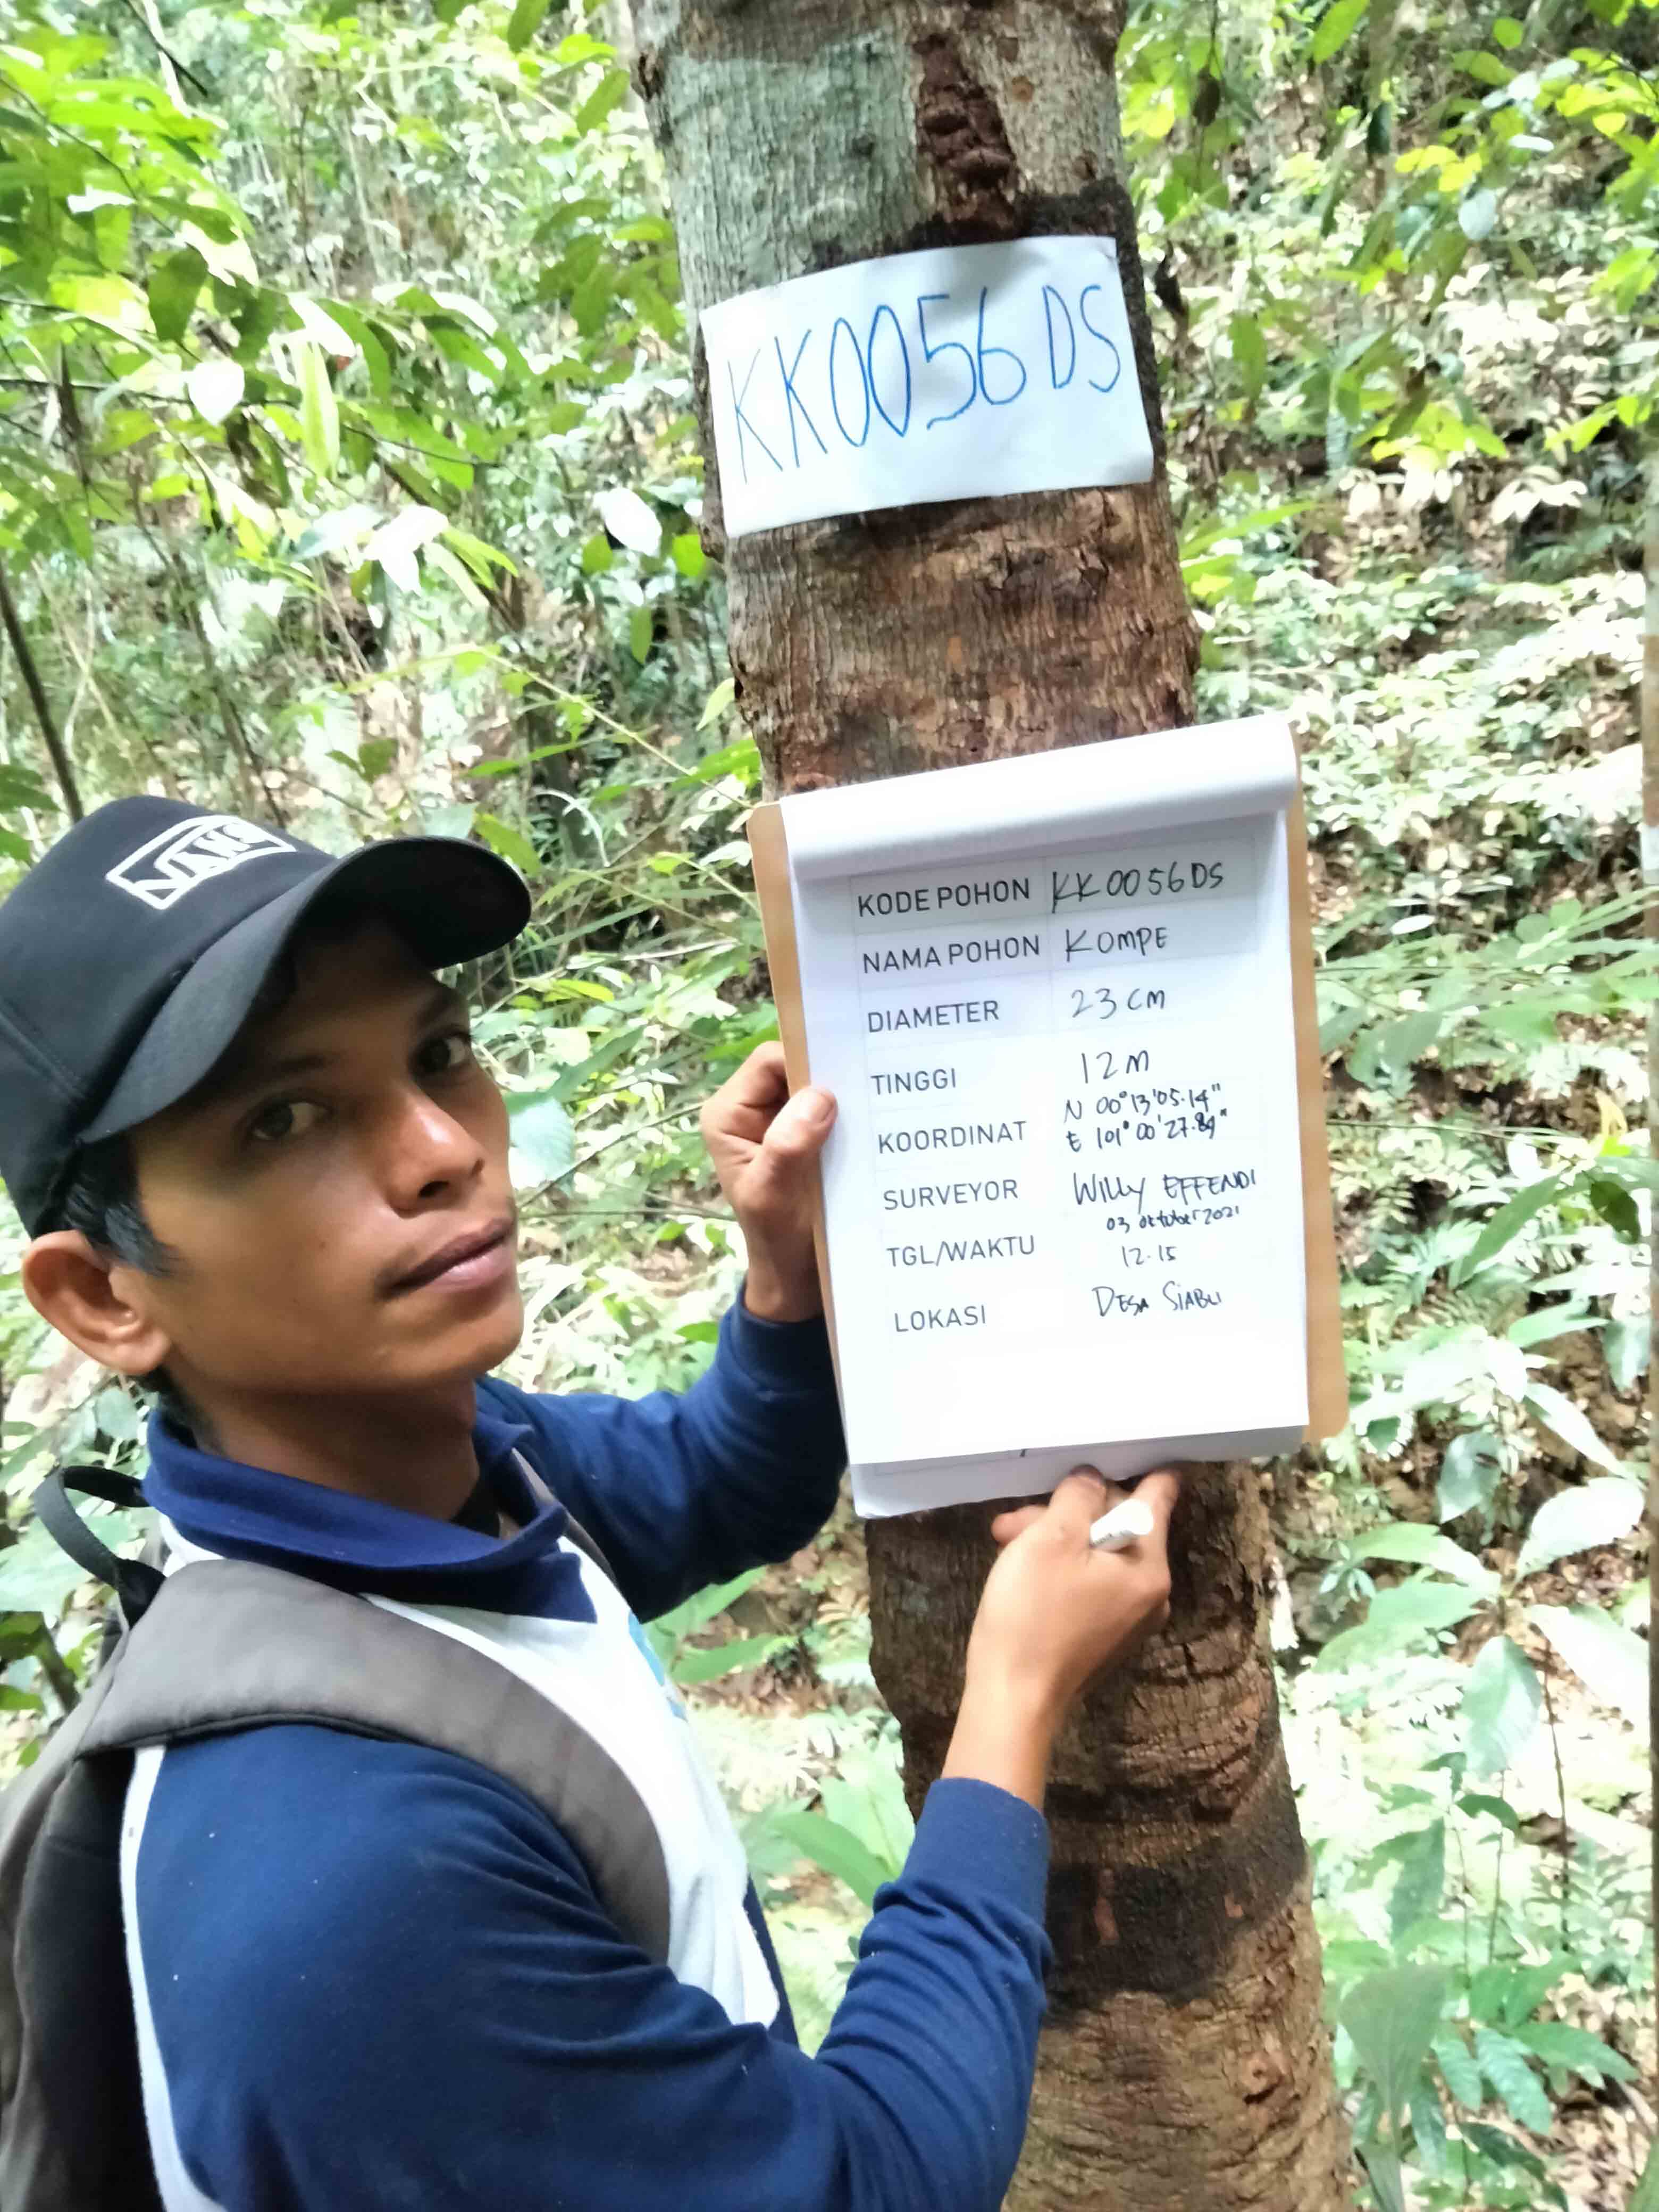 KK0056 DS
VANS
KODE POHON KK0056DS
NAMA POHON KOMPE
DIAMETER 23 CM
TINGGI 12 M
KOORDINAT N 00°13'05.14"
E 101°00'27.89"
SURVEYOR WILLY EFFENDI
TGL/WAKTU 03 oktober 2021
12.15
LOKASI DESA SIABU